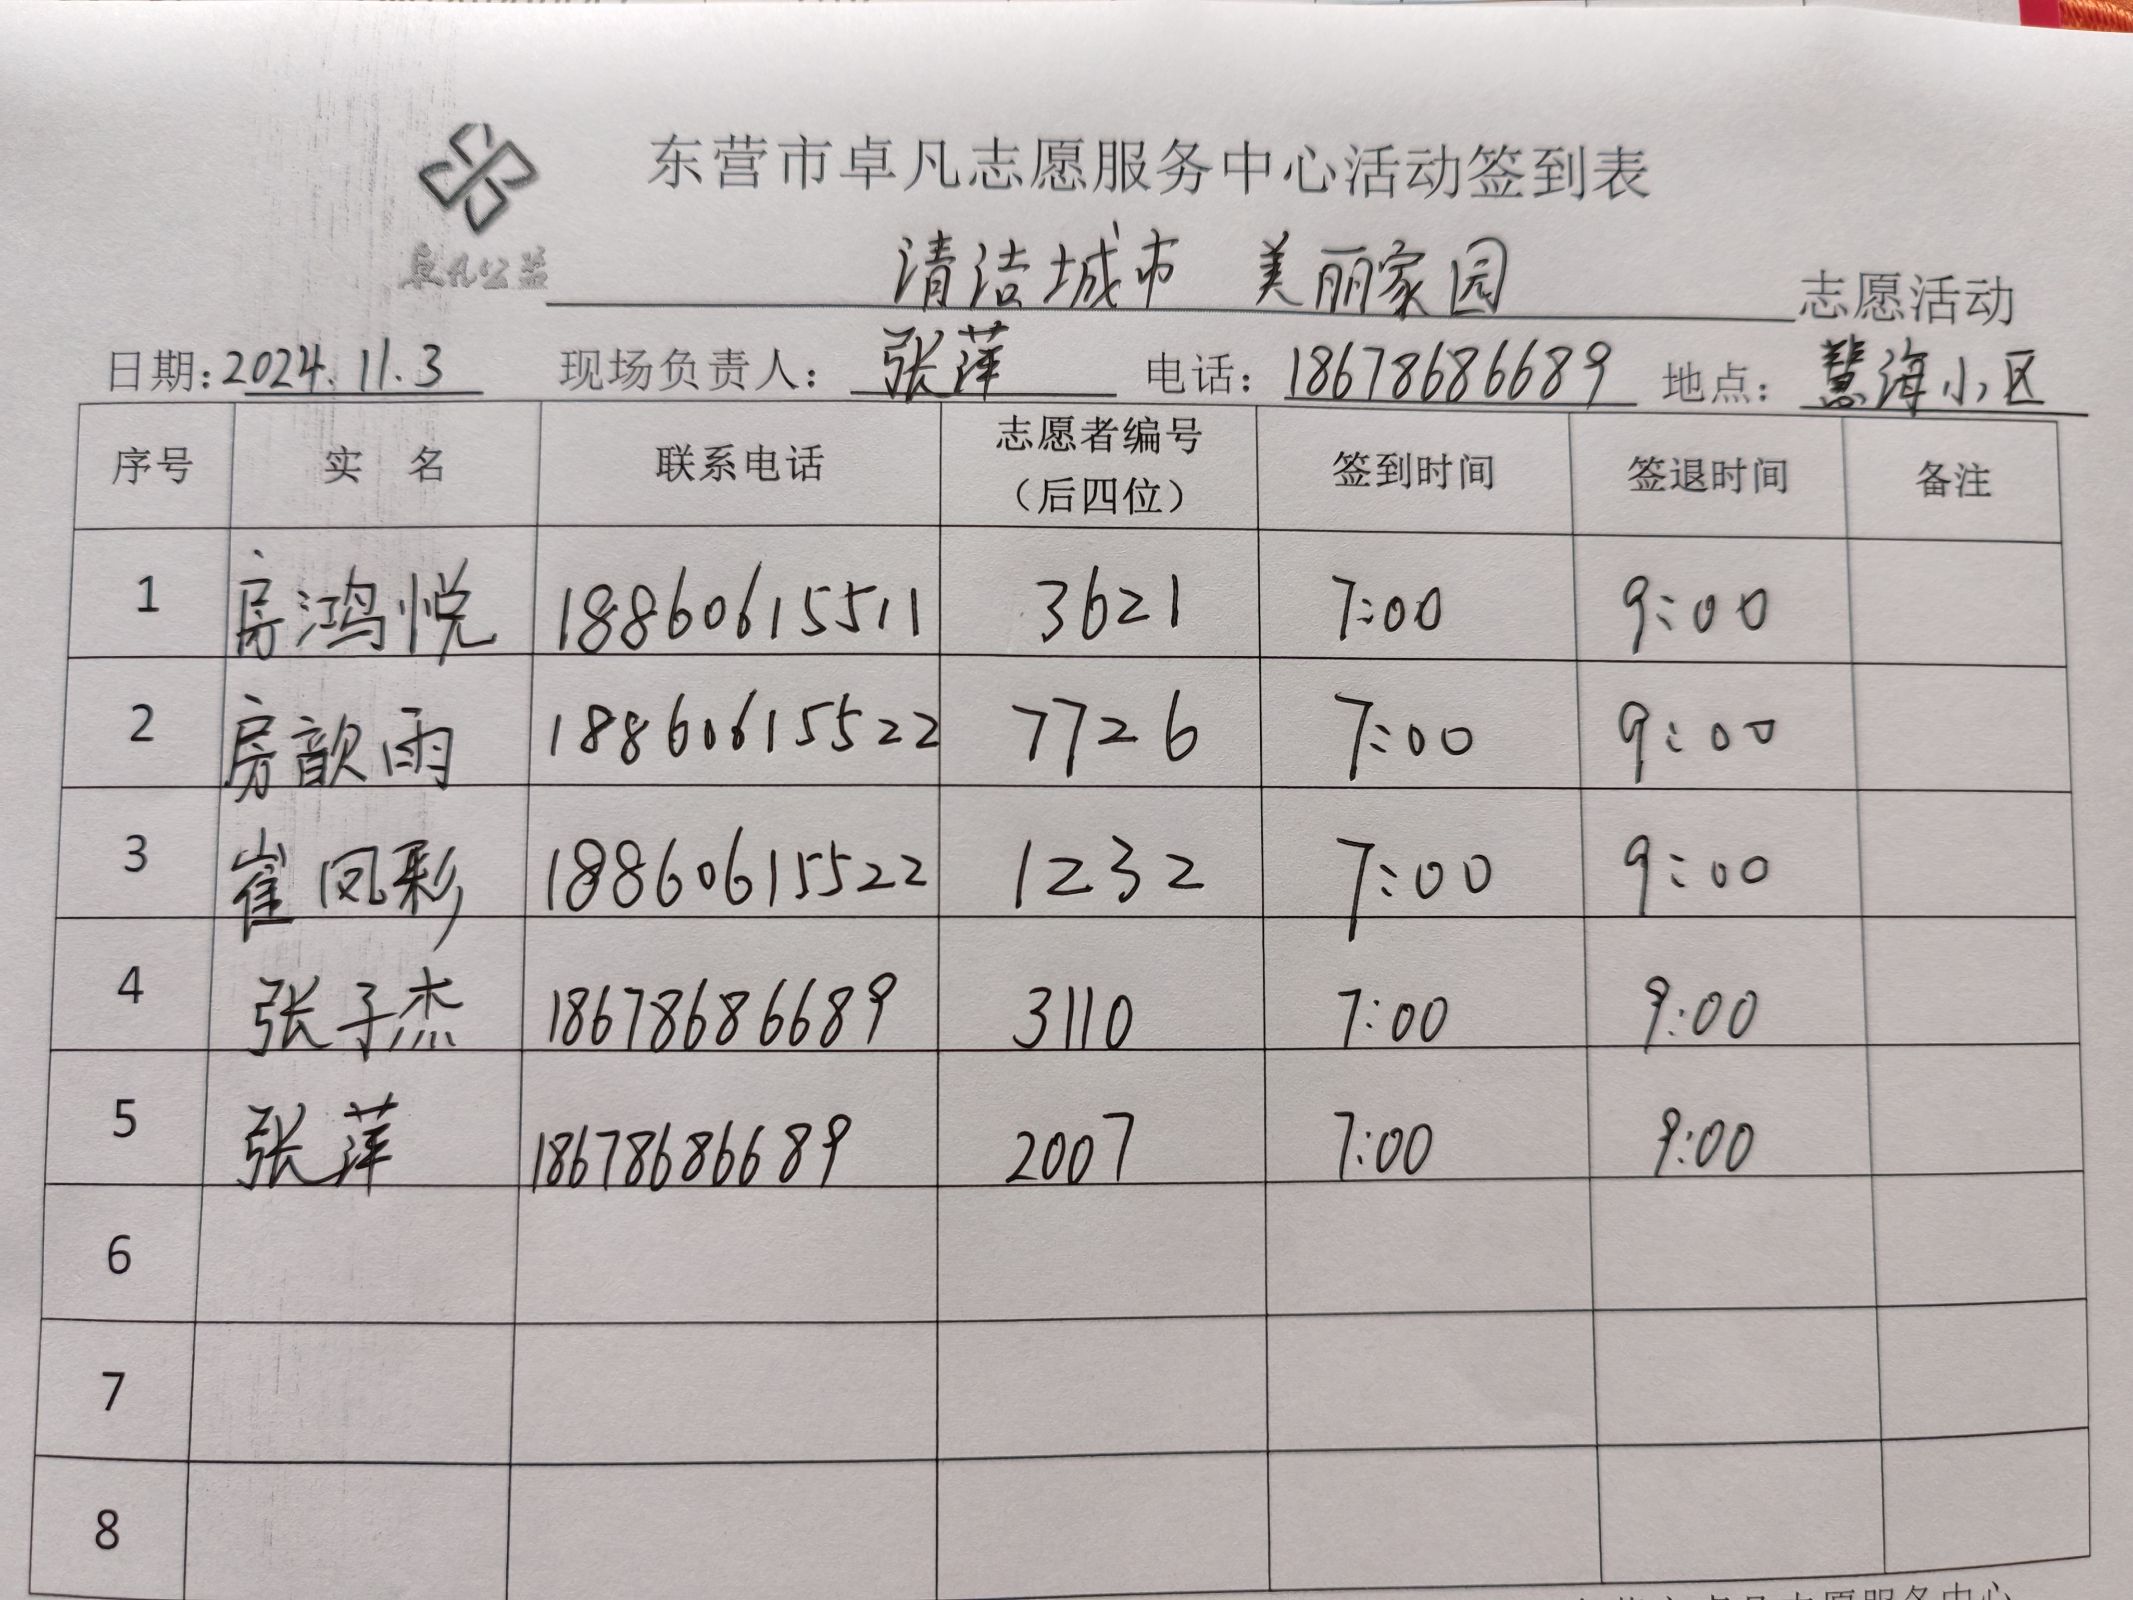 东营市卓凡志愿服务中心活动签到表
卓凡公益
清洁城市 美丽家园 志愿活动
日期:2024.11.3 现场负责人:张萍 电话:18678686689 地点:慧海小区
序号 实名 联系电话 志愿者编号(后四位) 签到时间 签退时间 备注
1 房鸿悦 18860615511 3621 7:00 9:00
2 房歆雨 18860615522 7726 7:00 9:00
3 崔凤彩 18860615522 1232 7:00 9:00
4 张子杰 18678686689 3110 7:00 9:00
5 张萍 18678686689 2007 7:00 9:00
6
7
8
东营市卓凡志愿服务中心